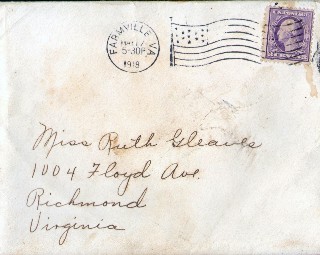 FARMVILLE VA.
5-30P
1918
Miss Ruth Gleaves
1004 Floyd Ave.
Richmond
Virginia